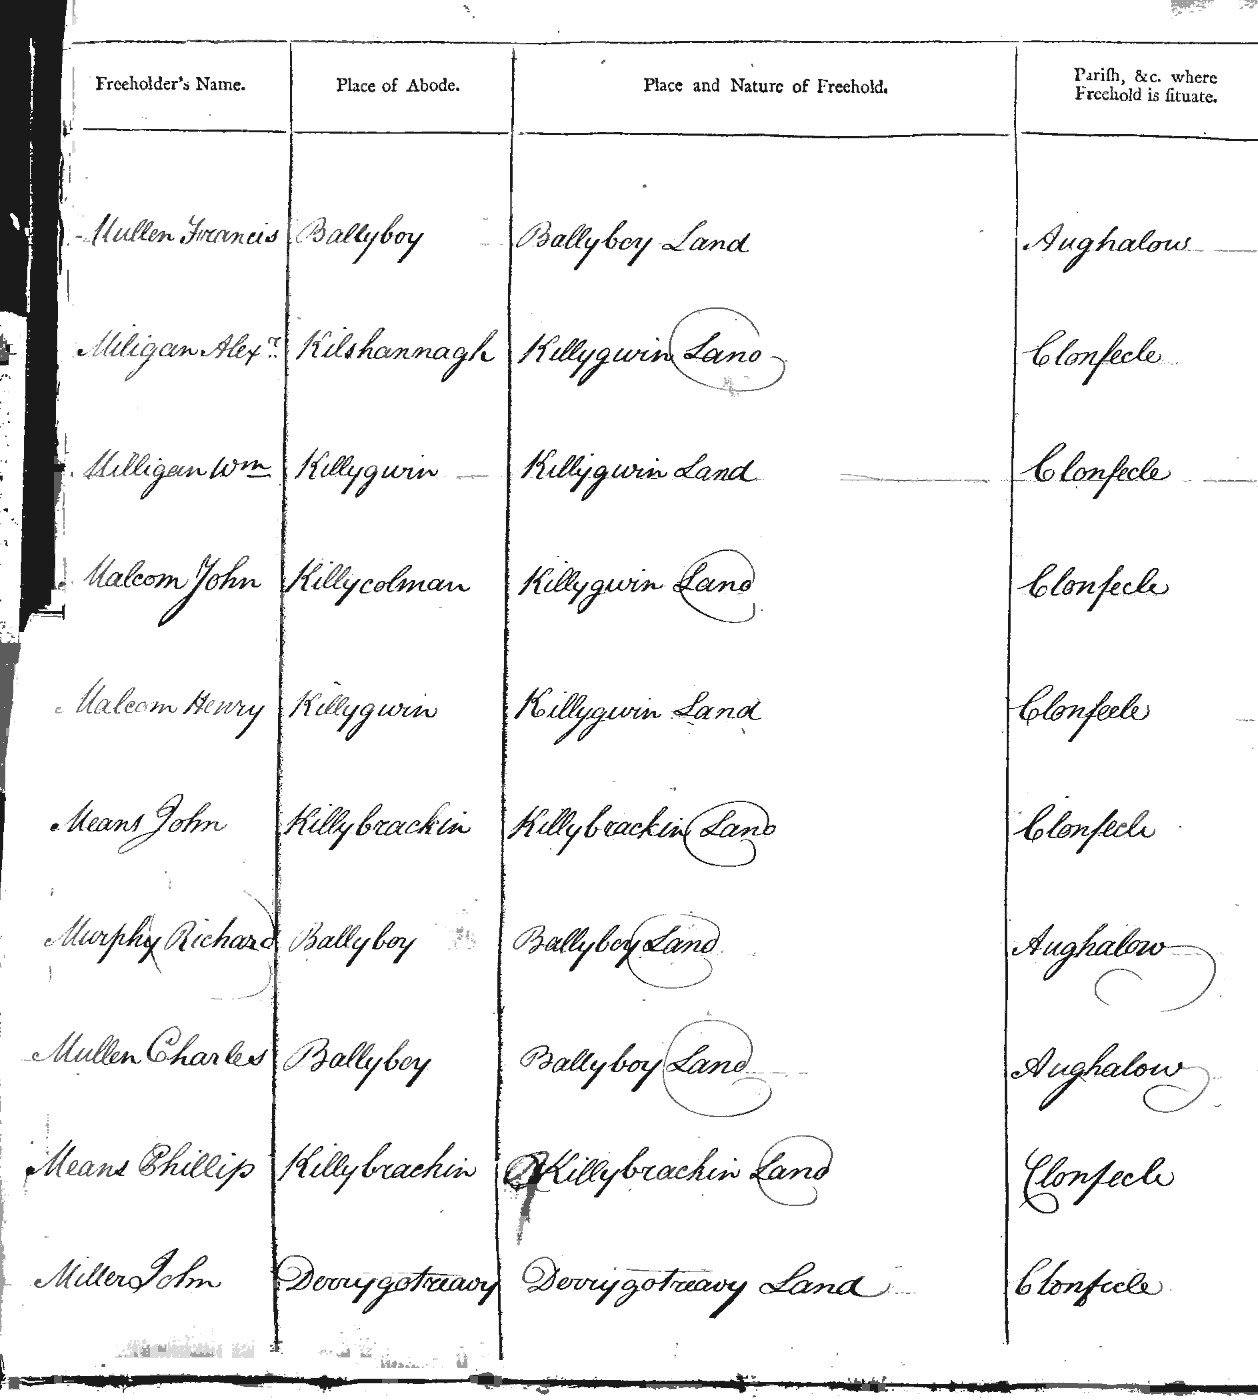 Freeholder's Name. Place of Abode. Place and Nature of Freehold. Pariſh, &c. where
Freehold is ſituate.
Mullen Francis Ballyboy Ballyboy Land Aughalow
Miligan Alexr. Kilshannagh Killygwin Land Clonfecle
Milligan Wm Killygwin Killygwin Land Clonfecle
Malcom John Killycolman Killygwin Land Clonfecle
Malcom Henry Killygwin Killygwin Land Clonfecle
Means John Killybrackin Killybrackin Land Clonfecle
Murphy Richard Ballyboy Ballyboy Land Aughalow
Mullen Charles Ballyboy Ballyboy Land Aughalow
Means Phillip Killybrackin Killybrackin Land Clonfecle
Miller John Derrygotreavy Derrygotreavy Land Clonfecle